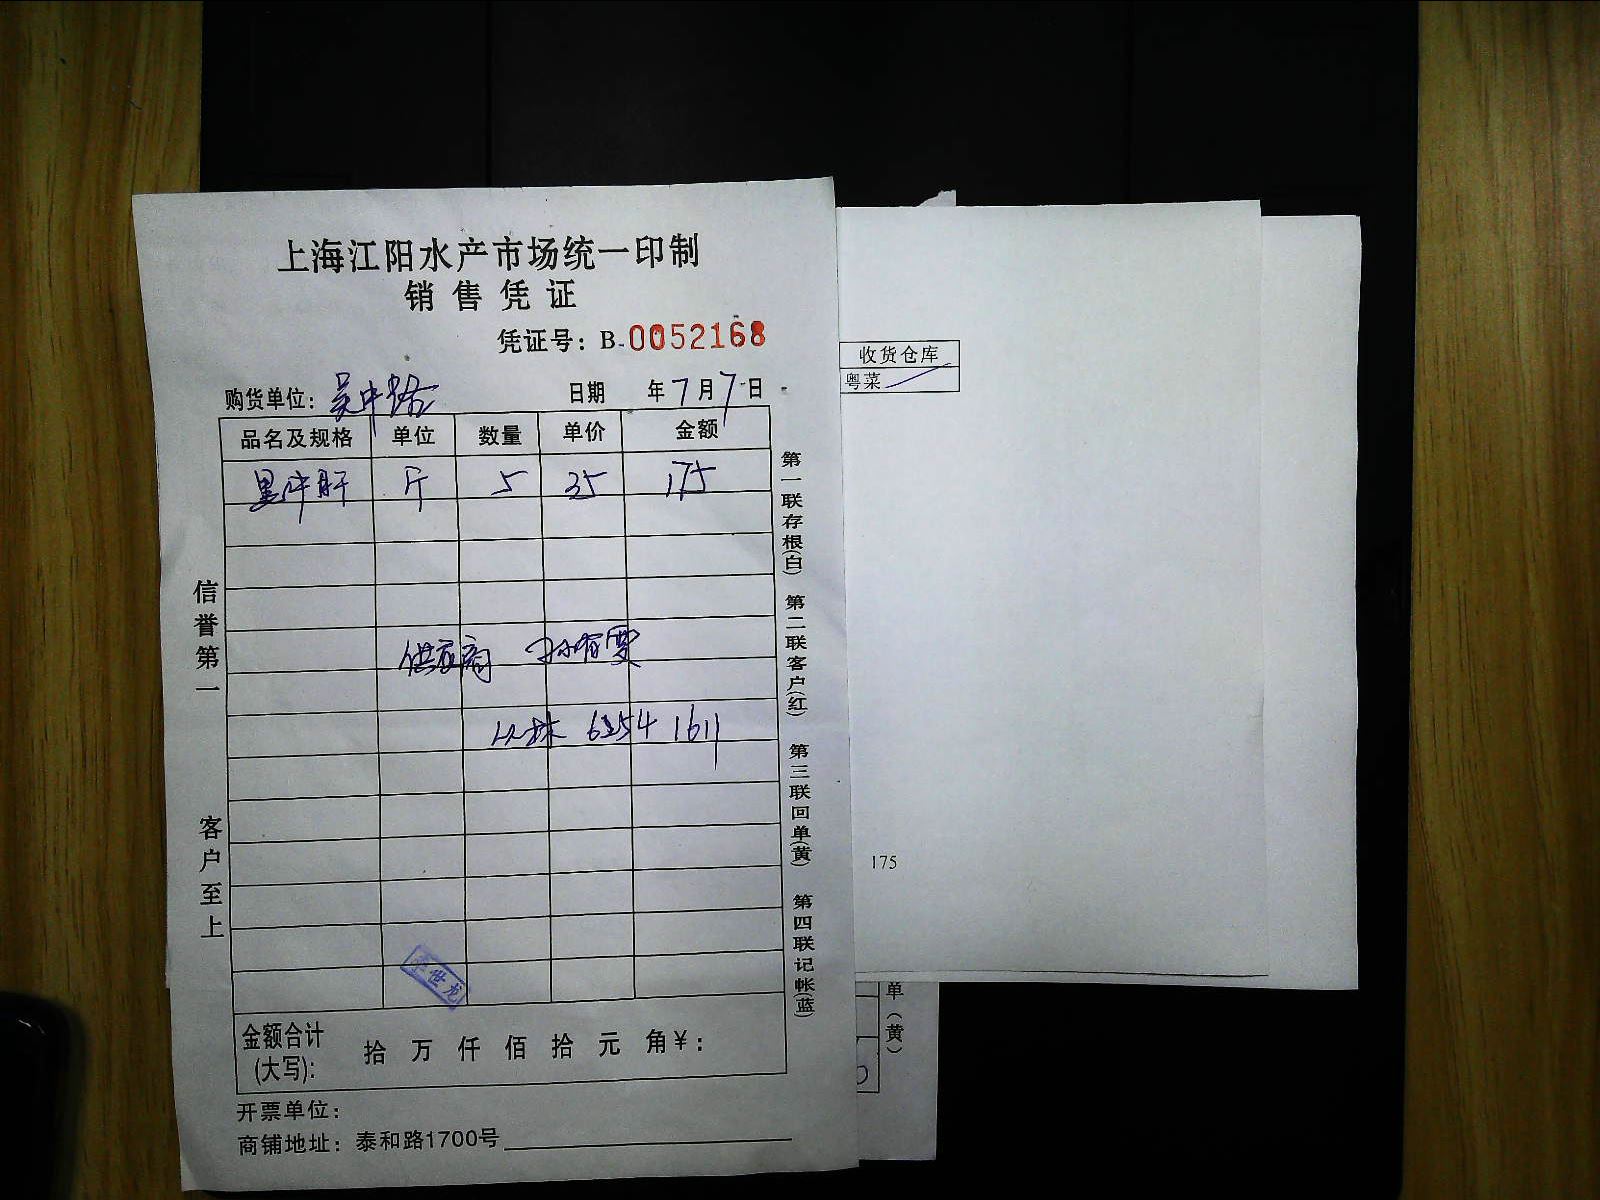 上海江阳水产市场统一印制
销售凭证
凭证号：B-0052168
购货单位：吴中路 日期 年7月7日
品名及规格 单位 数量 单价 金额
黑牛肝 斤 5 35 175
供应商
6254 1611
李世龙
金额合计(大写)： 拾 万 仟 佰 拾 元 角 ¥：
开票单位：
商铺地址：泰和路1700号
信誉第一
客户至上
第一联存根(白) 第二联客户(红) 第三联回单(黄) 第四联记帐(蓝)
收货仓库
粤菜
175
单(黄)